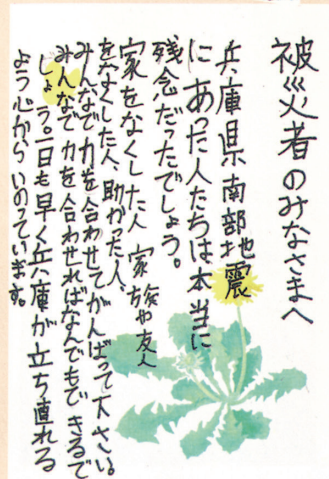 被災者のみなさまへ
兵庫県南部地震
にあった人たちは本当に
残念だったでしょう。
家をなくした人 家族や友人
をなくした人、助かった人、
みんなで力を合わせてがんばって下さい。
みんなで力を合わせればなんでもできるで
しょう。一日も早く兵庫が立ち直れる
よう心からいのっています。